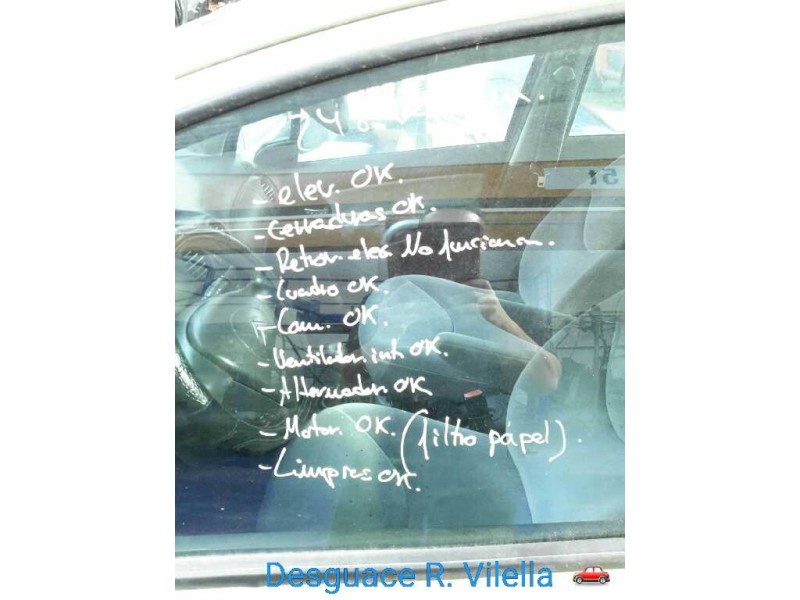 - elev. OK.
- Cerraduras OK.
- Retrov. elec. No funcionan.
- Cuadro OK.
- Cam. OK.
- Ventilador int. OK.
- Alternador OK
- Motor. OK. (filtro pápel).
- Limpias OK.
51
Desguace R. Vilella